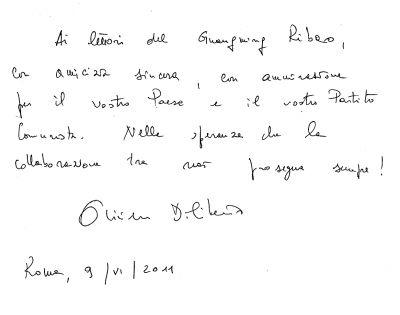 Ai lettori del Guangming Ribao,
con amicizia sincera, con ammirazione
per il vostro Paese e il vostro Partito
Comunista. Nella speranza che la
collaborazione tra noi prosegua sempre!
Oliviero Diliberto
Roma, 9/VI/2011